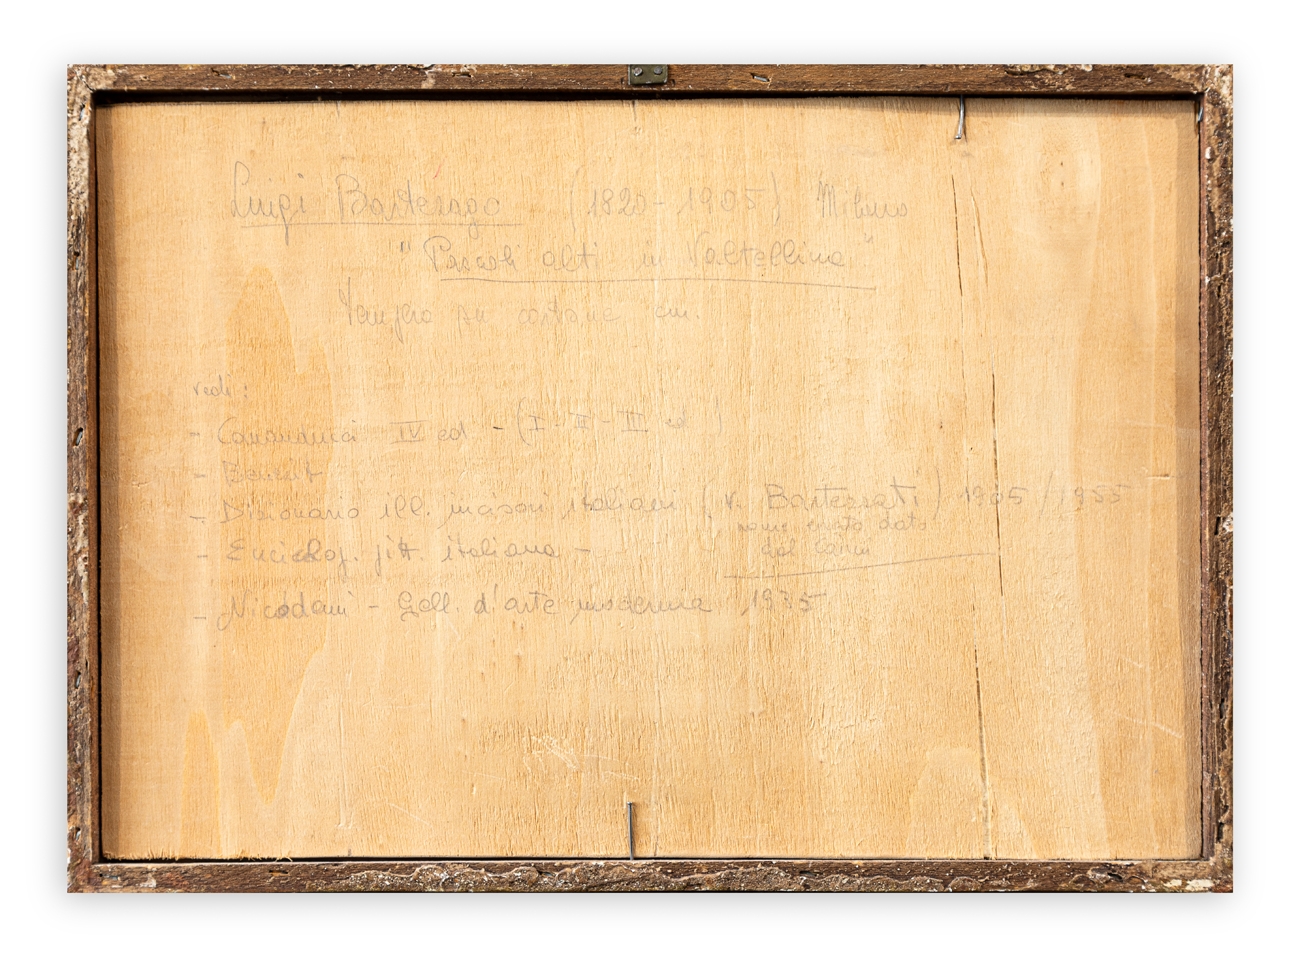 Luigi Bartesago (1820-1905) Milano
"Pascoli alti in Valtellina"
Tempera su cartone cm.
vedi:
- Comanducci IV ed - (I - II - III ed )
- Benezit
- Dizionario ill. incisori italiani (v. Bartessati) 1905/1955
nome errato dato
dal
- Enciclop. pitt. italiana -
- Nicodemi - Gall. d'arte moderna, 1935